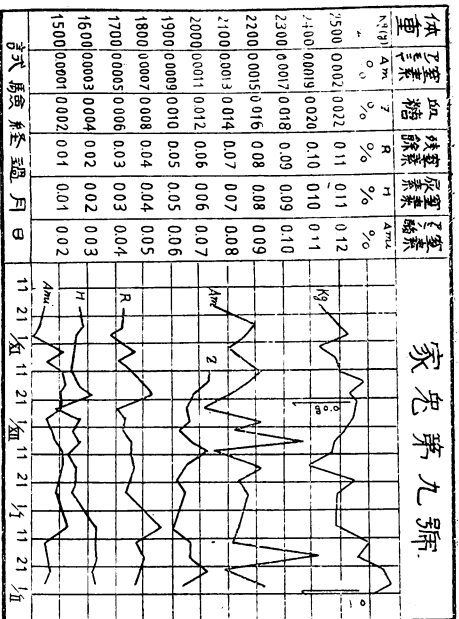 家兎第九號.
体重 窒素 血糖 残餘窒素 尿素窒素 酸窒素
Am % Z % R % H % Ami %
2500 0.002 0.022 0.11 0.11 0.12
2400 0.0019 0.020 0.10 0.10 0.11
2300 0.0017 0.018 0.09 0.09 0.10
2200 0.0015 0.016 0.08 0.08 0.09
2100 0.0013 0.014 0.07 0.07 0.08
2000 0.0011 0.012 0.06 0.06 0.07
1900 0.0009 0.010 0.05 0.05 0.06
1800 0.0007 0.008 0.04 0.04 0.05
1700 0.0005 0.006 0.03 0.03 0.04
1600 0.0003 0.004 0.02 0.02 0.03
1500 0.0001 0.002 0.01 0.01 0.02
Kg
Am
Z
R
H
Ami
0.08
試驗経過月日
11 21 1/XI 11 21 1/XII 11 21 1/I 11 21 1/II